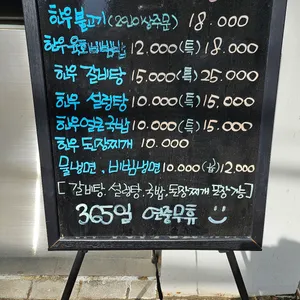 한우 불고기(2인이상주문) 18.000
한우 육회 비빔밥 12.000(특) 18.000
한우 갈비탕 15.000(특) 25.000
한우 설렁탕 10.000(특) 15.000
한우 얼큰국밥 10.000(특) 15.000
한우 된장찌개 10.000
물냉면, 비빔냉면 10.000(곱) 12.000
[갈비탕. 설렁탕. 국밥. 된장찌개 포장가능]
365일 연중무휴